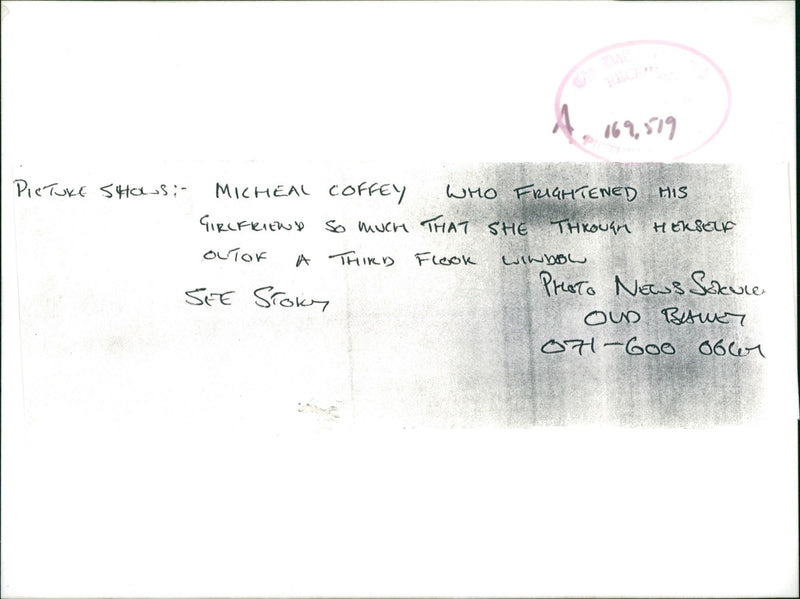 A. 169,519
PICTURE SHOWS:- MICHEAL COFFEY WHO FRIGHTENED HIS
GIRLFRIEND SO MUCH THAT SHE THROUGH HERSELF
OUTOF A THIRD FLOOR WINDOW
SEE STORY
PHOTO NEWS SERVICE
OLD BAILEY
071-600